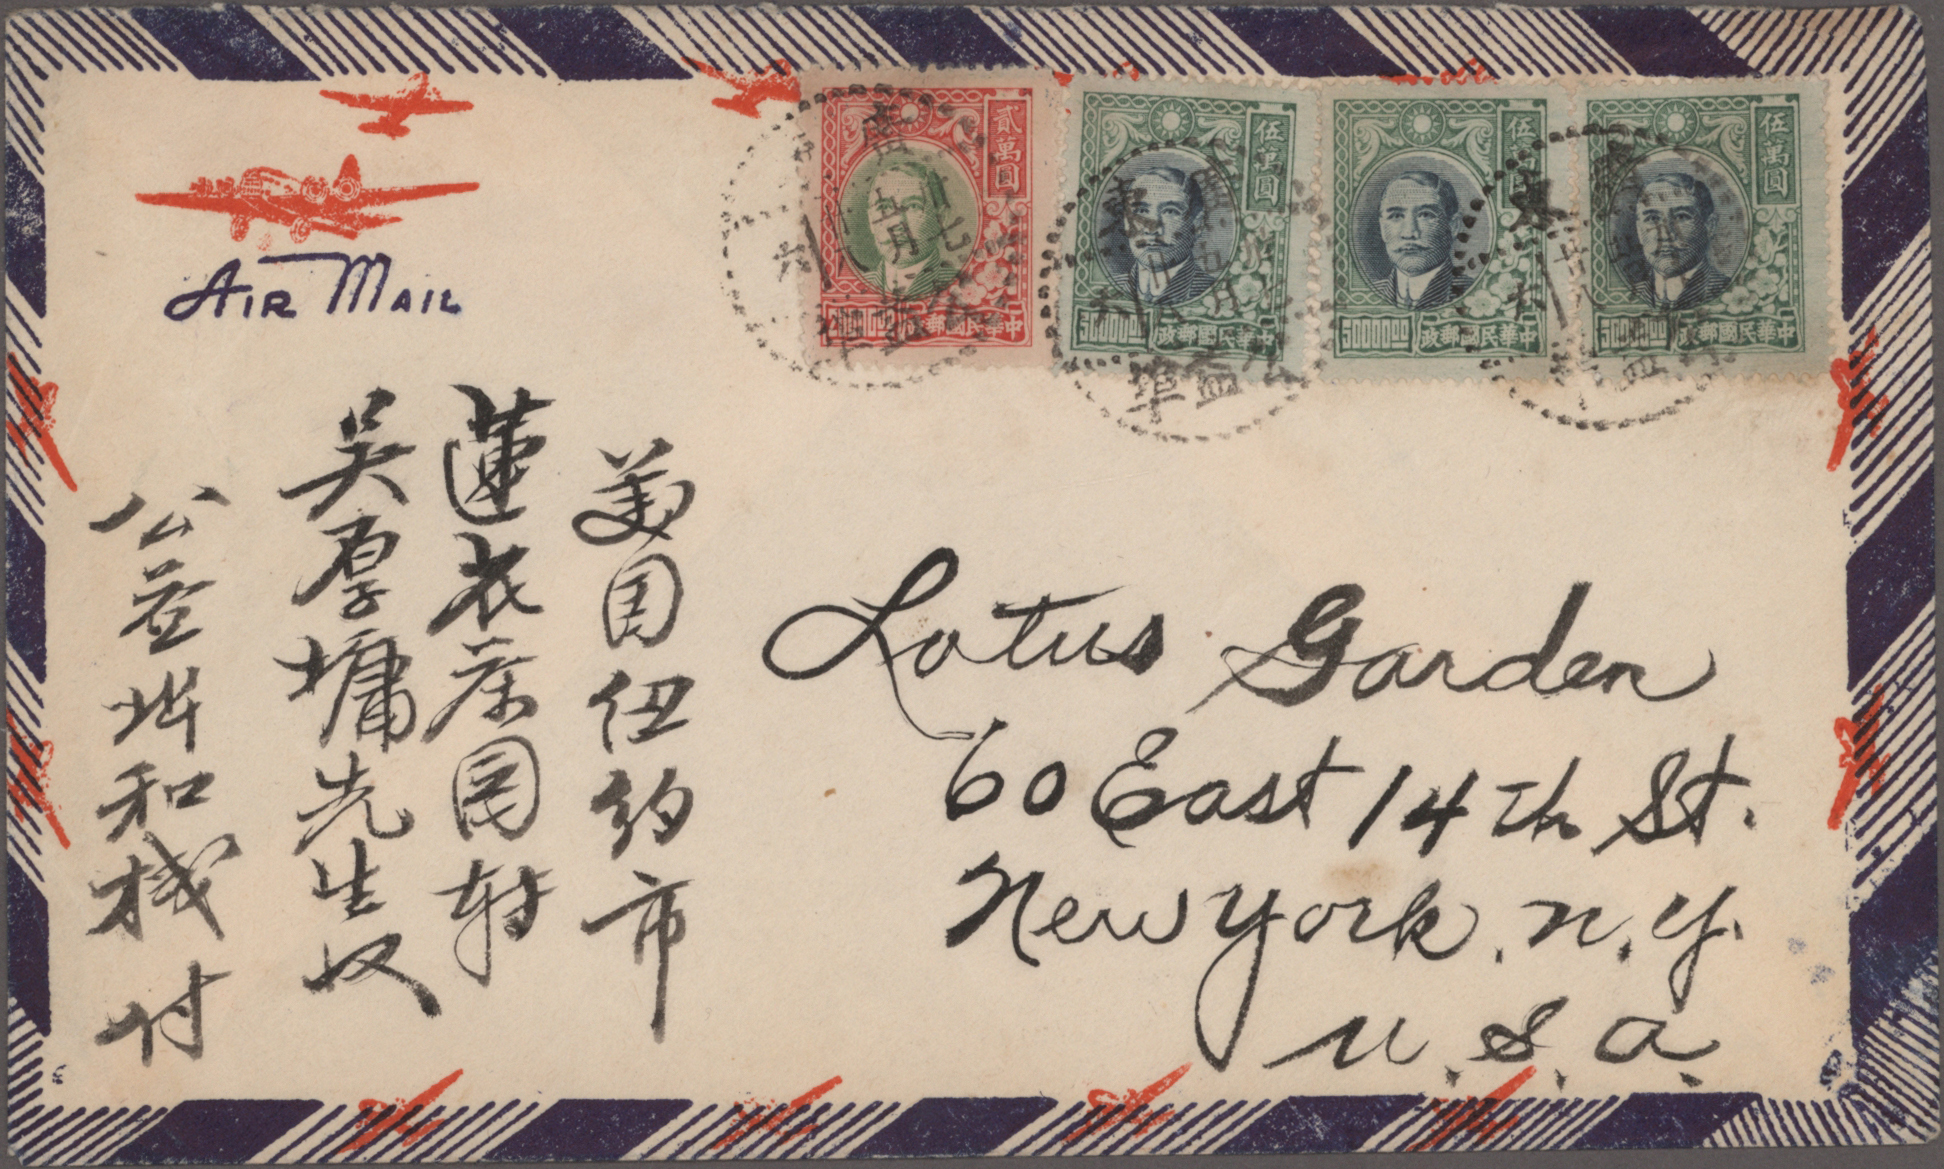 AIR MAIL
貳萬圓
中華民國郵政
伍萬圓
5000000
中華民國郵政
伍萬圓
5000000
中華民國郵政
伍萬圓
5000000
中華民國郵政
公益埠
美国纽约市
蓮花茶园转
吴厚墉先生收
公益埠和棧付
Lotus Garden
60 East 14th St.
New York. N.Y.
U.S.A.